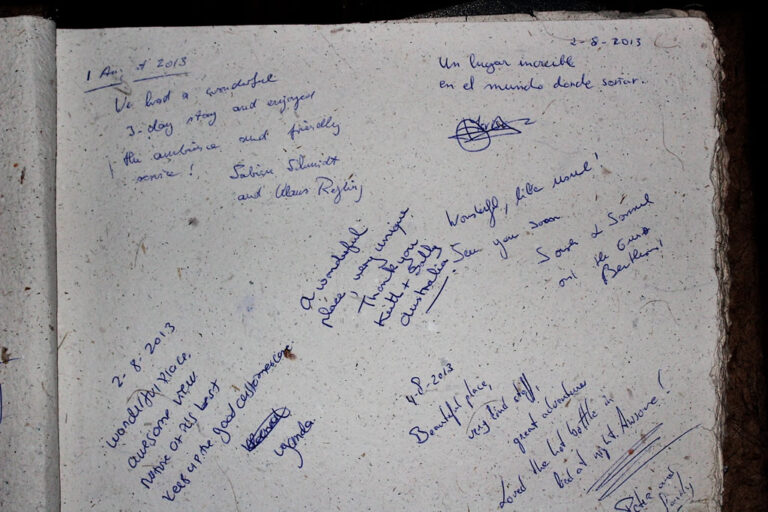 1 Aug 2013
We had a wonderful
3-day stay and enjoyed
the ambiance and friendly
service!
Sabine Schmidt
and Klaus
2-8-2013
Un lugar increíble
en el mundo donde soñar.
A wonderful
place, very unique.
Thank you
Keith + Sally
Australia.
Wonderful, like usual!
See you soon
& Samuel
2-8-2013
wonderful place,
awesome view
nature at its best
keep up the good customer care
uganda.
4-8-2013
Beautiful place,
very kind staff,
great adventures
Loved the hot bottle in
bed at night. Awsome!
Peter and
family